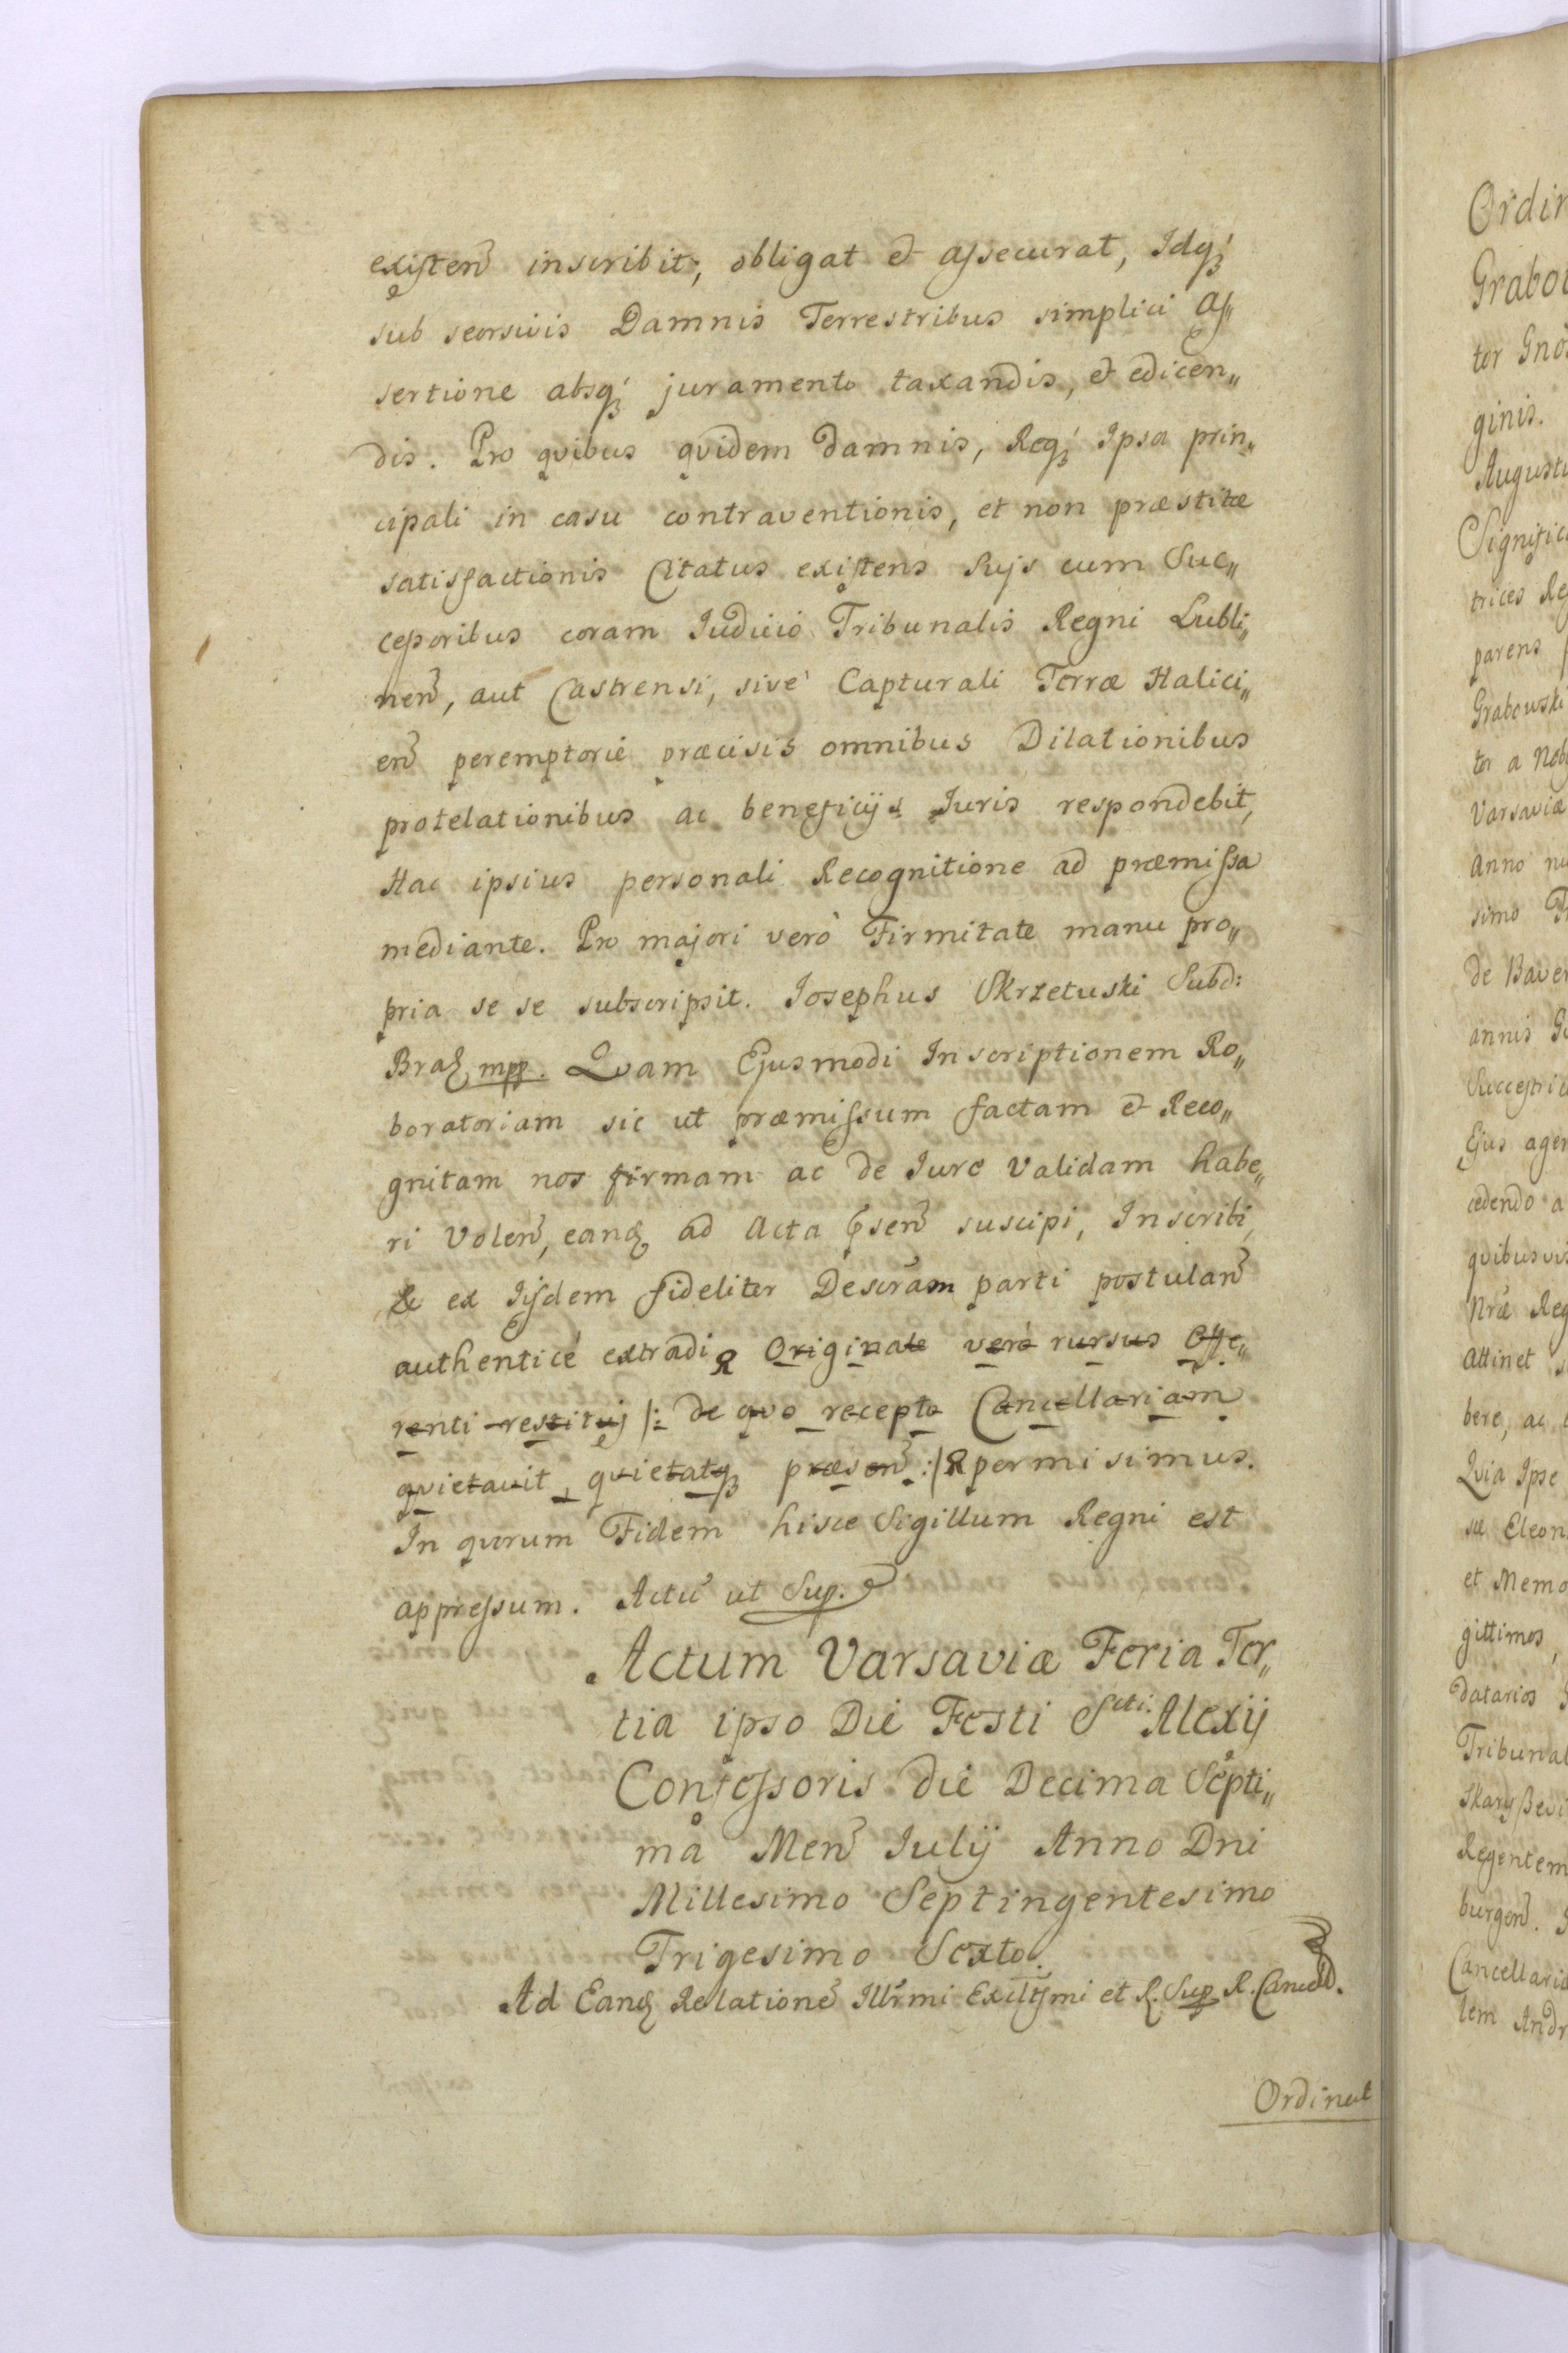 existen̄ inscribit, obligat et assecurat, Idq́ꝫ
sub seorsivis Damnis Terrestribus simplici As„
sertione absq́ꝫ juramento taxandis, et edicen„
dis. Pro qvibus qvidem Damnis, Req́ꝫ Ipsa prin„
cipali in casu contraventionis, et non præstitæ
satisfactionis Citatus existens Suis cum Suc„
cessoribus coram Iudicio Tribunalis Regni Lubli„
nen̄, aut Castrensi, sivè Capturali Terræ Halici„
en̄ peremptoriè præcisis omnibus Dilationibus
protelationibus ac beneficijs Iuris respondebit,
Hac ipsius personali Recognitione ad præmissa
mediante. Pro majori verò Firmitate manu pro„
pria se se subscripsit. Iosephus Skrzetuski Subd:
Braꝫ mpp. Qvam Ejusmodi Inscriptionem Ro„
boratoriam sic ut præmissum factam et Reco„
gnitam nos firmam ac de Iure validam habe„
ri Volen̄, eandꝫ ad Acta p̄sen̄ suscipi, Inscribi,
& ex Iisdem fideliter Descrām parti postulan̄
authenticè extradi Originale verò rursus Offe„
renti restitui /: de qvo recepto Cancellariam
qvietavit, qvietatqꝫ præsen̄ :/ permisimus.
In qvorum Fidem hisce Sigillum Regni est
appressum. Actū ut Sup.
Actum Varsaviæ Feria Ter„
tia ipso Die Festi Scti: Alexij
Confessoris die Decima Septi„
ma Men̄ Iulij Anno Dni
Millesimo Septingentesimo
Trigesimo Sexto.
Ad Eandꝫ Relationē Illr̄mi Excllsmi et R. Sup R. Cancell.
Ordinat
Ordin
Grabow
tor Gnos
ginis.
Augustu
Significa
trices Reg
parens
Grabowski
tor a Nob
Varsaviæ
Anno nu
simo
de Baver
annis
Successri
Ejus agen
cedendo a
qvibusvis
Nræ Reg
Attinet
bere, ac
Qvia Ipse
sæ Eleon
et Memo
gittimos,
datarios
Tribunal
Skaryszevi
Regentem
burgen̄.
Cancellaria
lem Andr